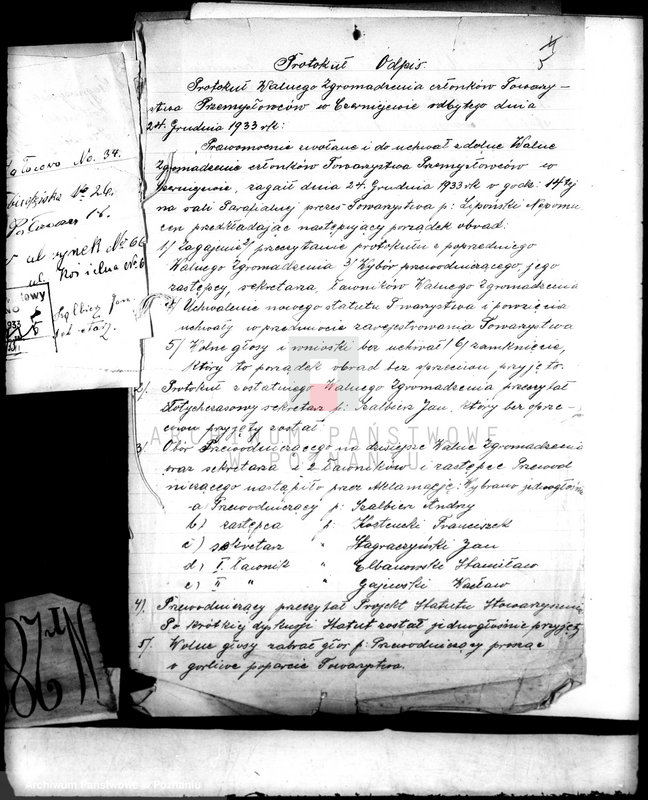 Protokuł Odpis.
Protokuł Walnego Zgromadzenia członków Towarzy-
stwa Przemysłowców w Czerniejewie odbytego dnia
24. Grudnia 1933 rk:
Prawomocnie zwołane i do uchwał zdolne Walne
Zgromadzenie członków Towarzystwa Przemysłowców w
Czerniejewie, zagaił dnia 24. Grudnia 1933 rk w godz: 14tej
na sali Parafialnej prezes Towarzystwa p: Lipoński Nepomu
cen przedkładając następujący porządek obrad:
1) Zagajenie 2) przeczytanie protokułu z poprzedniego
Walnego Zgromadzenia 3) Wybór przewodniczącego, jego
zastępcy, sekretarza, ławników Walnego Zgromadzenia
4) Uchwalenie nowego statutu Towarzystwa i powzięcia
uchwały w przedmiocie zarejestrowania Towarzystwa
5) Wolne głosy i wnioski bez uchwał 6) zamknięcie,
który to porządek obrad bez sprzeciwu przyjęto.
2). Protokuł z ostatniego Walnego Zgromadzenia przeczytał
dotychczasowy sekretarz p: Szalbierz Jan, który bez sprze-
ciwu przyjęty został.
3. Obór Przewodniczącego na dzisiejsze Walne Zgromadzenie
oraz sekretarza i 2 ławników i zastępcę Przewod
niczącego nastąpiło przez Aklamację: Wybrano jednogłośnie
a) Przewodniczący p: Szalbierz Andrzy
b) zastępca p: Kostencki Franciszek
c) sekretarz " Stagraczyński Jan
d) I. ławnik " Elbanowski Stanisław
e) II " " Gajewski Wacław
4). Przewodniczący przeczytał Projekt Statutu Stowarzyszenia
Po krótkiej dyskusji Statut został jednogłośnie przyjęty
5). Wolne głosy zabrał głos p: Przewodniczący prosząc
o gorliwe poparcie Towarzystwa.
No. 34.
No 26.
ul rynek No 66
ul.
Jan
1933
ARCHIWUM PAŃSTWOWE
W POZNANIU
Archiwum Państwowe w Poznaniu